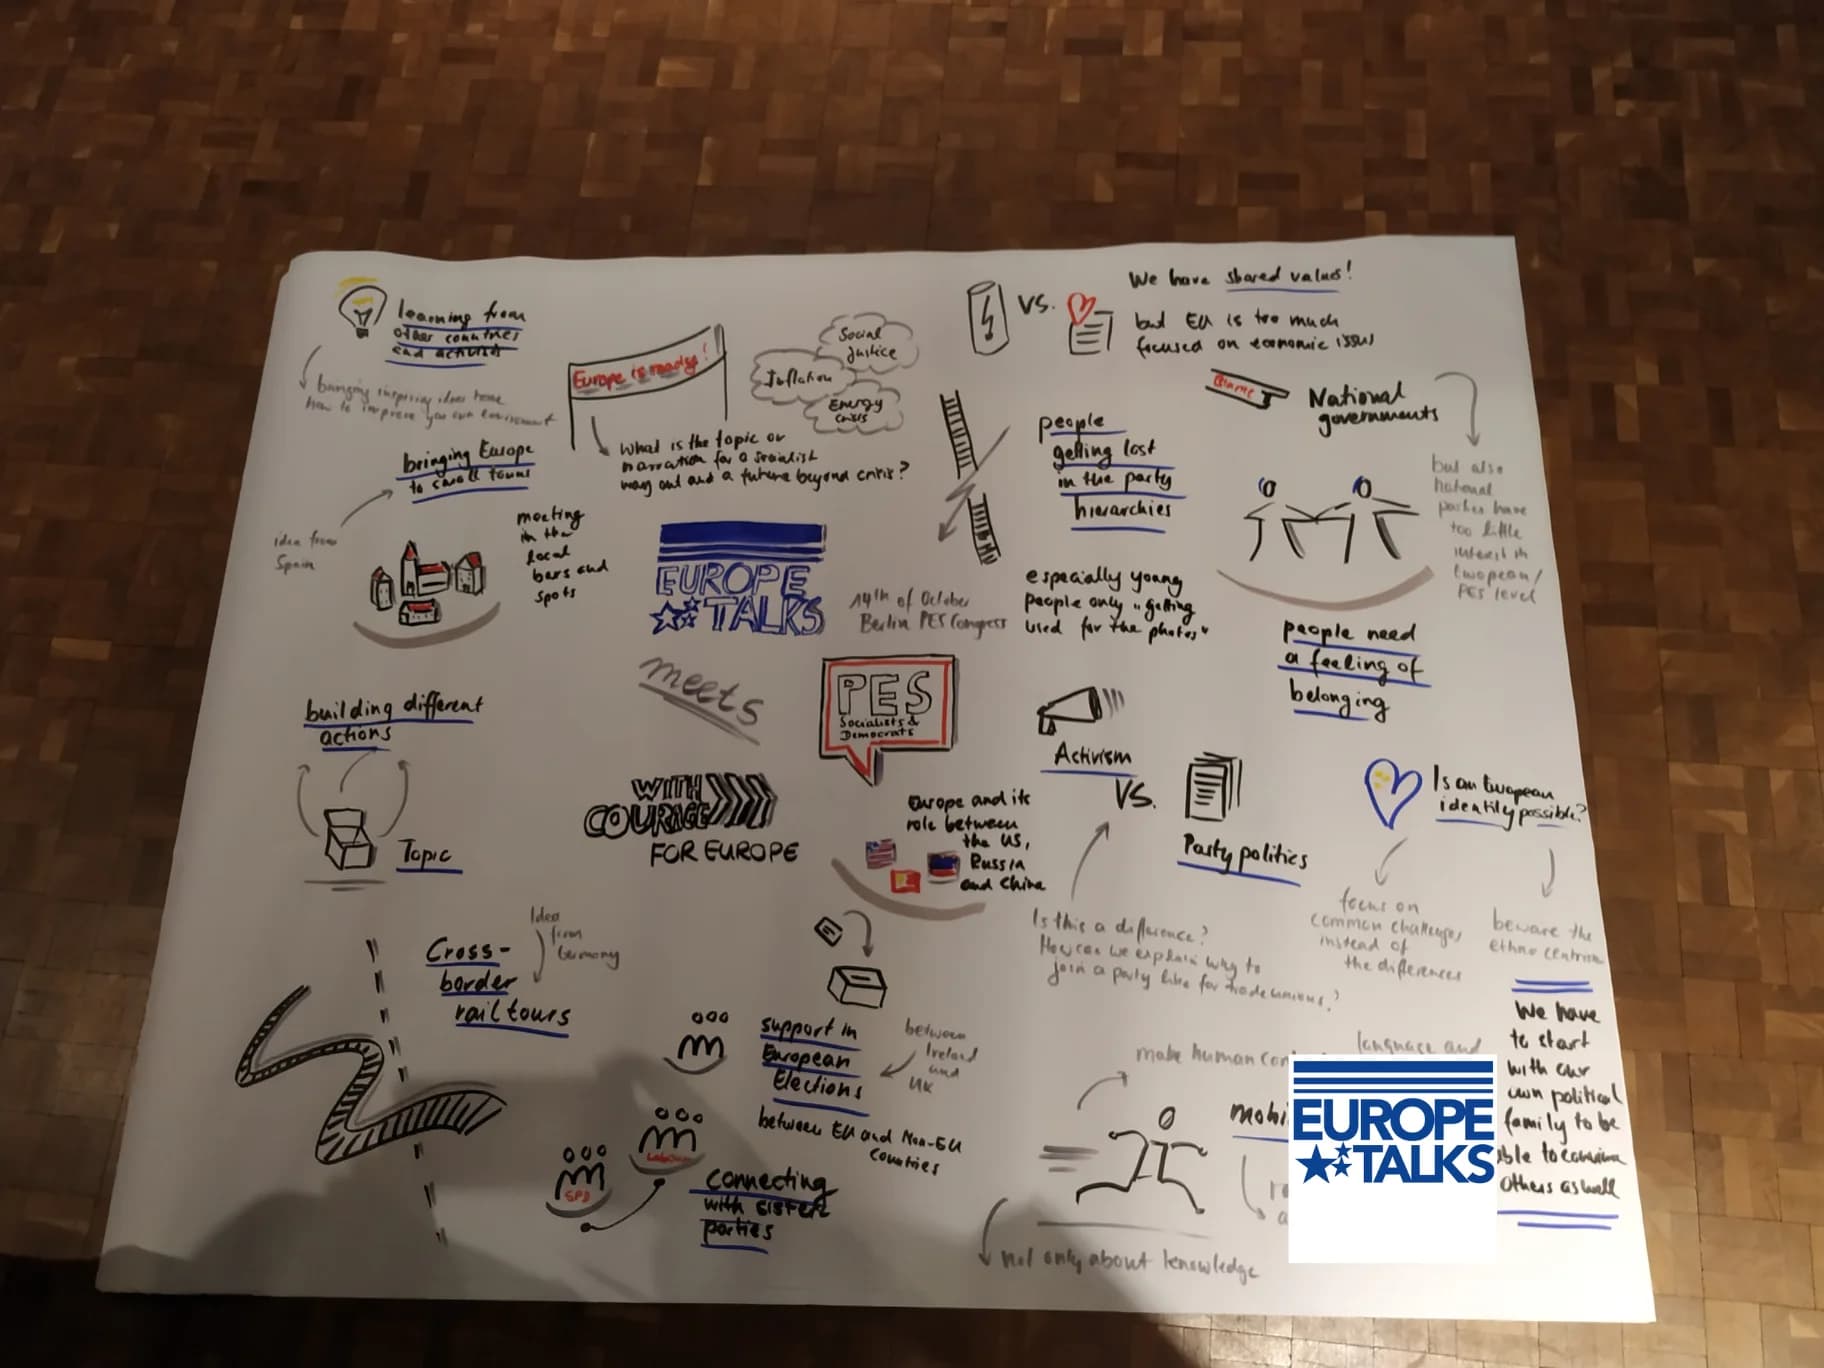 learning from
other countries
and activists
bringing inspiring ideas home
how to improve your own environment
bringing Europe
to small towns
idea from
Spain
meeting
in the
local
bars and
spots
Europe is ready!
What is the topic or
narration for a socialist
way out and a future beyond crisis?
Social
Justice
Inflation
Energy
crisis
VS.
We have shared values!
but EU is too much
focused on economic issues
Blame
National
governments
but also
national
parties have
too little
interest in
European/
PES level
people
getting lost
in the party
hierarchies
especially young
people only "getting
used for the photos"
people need
a feeling of
belonging
EUROPE
TALKS
14th of October
Berlin PES Congress
meets
PES
Socialists &
Democrats
WITH
COURAGE
FOR EUROPE
Europe and its
role between
the US,
Russia
and China
building different
actions
Topic
Activism
VS.
Party politics
Is this a difference?
How can we explain why to
join a party like for trade unions?
Is an European
identity possible?
focus on
common challenges
instead of
the differences
beware the
ethno centrism
We have
to start
with our
own political
family to be
able to convince
others as well
Cross-
border
rail tours
Idea
from
Germany
support in
European
Elections
between EU and Non-EU
countries
between
Ireland
and
UK
SPD
Labour
connecting
with sister
parties
make human
language and
not only about knowledge
EUROPE
TALKS